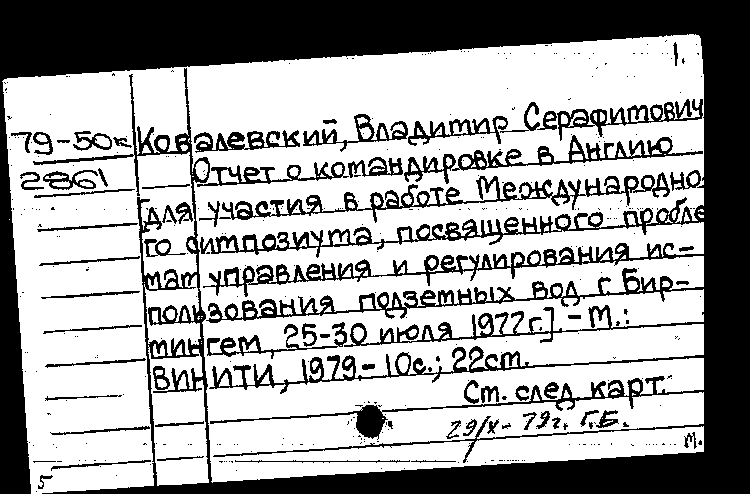 1.
79-50к Ковалевский, Владимир Серафимович
2861 Отчет о командировке в Англию
[для участия в работе Международно
го симпозиума, посвященного пробле
мам управления и регулирования ис-
пользования подземных вод г. Бир-
мингем, 25-30 июля 1977г.]. - М.:
ВИНИТИ, 1979. - 10с.; 22см.
Ст. след. карт.
29/X - 79г. Г.Б.
м.
5